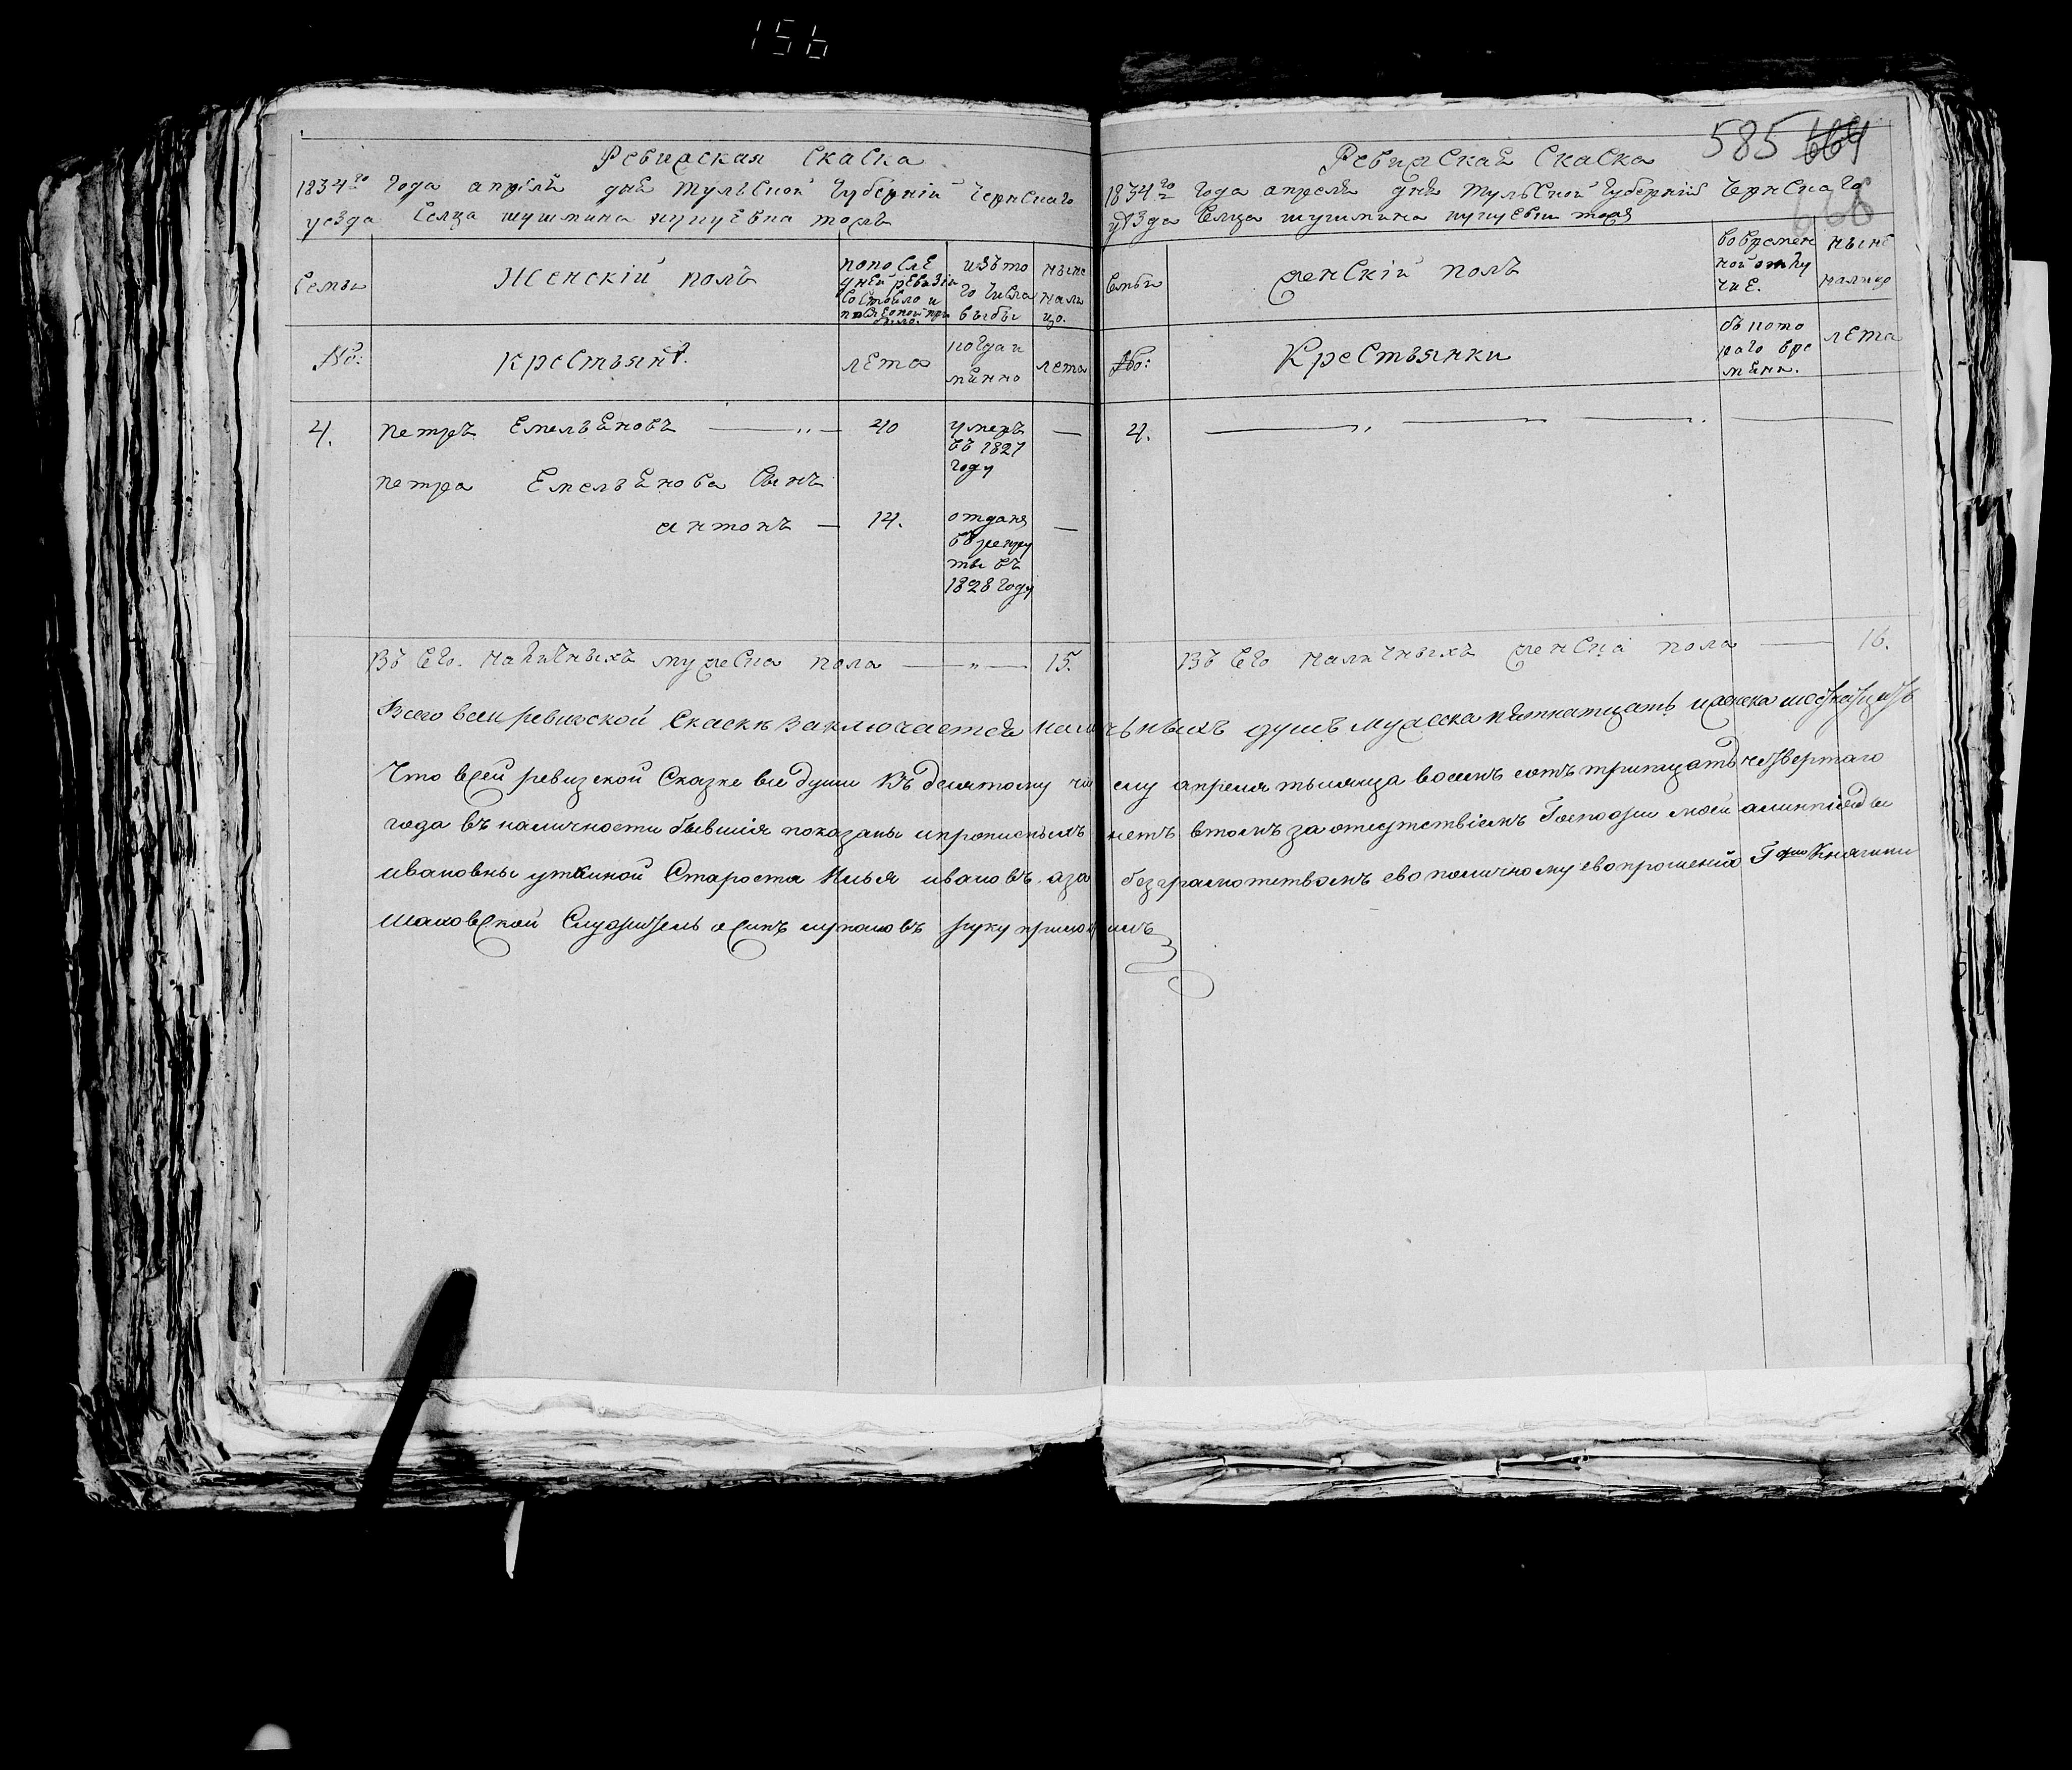 156
Ревиская скаска
1834го года апреля дня тульской губерніи чернскаго
уезда селца шушмина
Семьи
Женскій полъ
попосле
дней ревизіи
состояло и
изъ то
го числа
выбы
ныне
нали
цо.
№:
крестьяне.
лета
когда и
мѣнно
лета
4.
петръ Емельяновъ — 40
умеръ
въ 1827
году
—
петра Емельянова сынъ
антонъ — 14.
отданъ
в рекру
ты въ
1828 году
—
Въ сего наличныхъ мужеска пола — „ — 15.
585 664
628
Ревиская Скаска
1834го года апреля дня тульской губерніи чернскаго
уѣзда селца шушмина
Семьи
женскій полъ
во времен
ной отлу
чке.
ныне
налицо
№:
Крестьянки
съ кото
раго вре
мяни.
лета
4. —
Въ сего наличныхъ женска пола — 16.
Всего в сей ревиской скаске заключается наличьныхъ душъ мужеска пятнатцать и женска шеснатцать
Что всей ревизской Сказке все души къ десятому числу апреля тысяща восемь сотъ тритцать четвертаго
года въ наличности бывшія показаны и прописныхъ нетъ втомъ за отсутствіемъ Госпожи моей алимпіяды
ивановны уткиной Староста Илья ивановъ аза безграмотствомъ ево поличному ево прошенію Гжи Княгини
шаховской Служитель осипъ лукановъ руку приложилъ